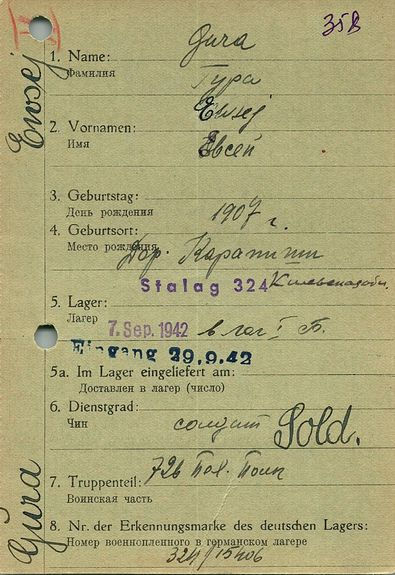 358
1. Name: Gura
Фамилия Гура
Ewsej
2. Vornamen:
Имя Евсей
3. Geburtstag:
День рождения 1907 г.
4. Geburtsort:
Место рождения Дер.
Stalag 324
5. Lager:
Лагер 7. Sep. 1942
Eingang 29.9.42
5a. Im Lager eingeliefert am:
Доставлен в лагер (число)
6. Dienstgrad:
Чин солдат Sold.
7. Truppenteil: 726
Воинская часть
8. Nr. der Erkennungsmarke des deutschen Lagers:
Номер военнопленного в германском лагере
324/15406
Ewsej
Gura